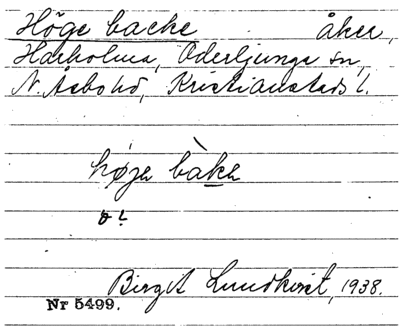 Höge backe åker,
Harholma, Oderljunga sn,
N. Åsbo hd, Kristianstads l.
høje bàke
Birgit Lundkvist, 1938.
Nr 5499.